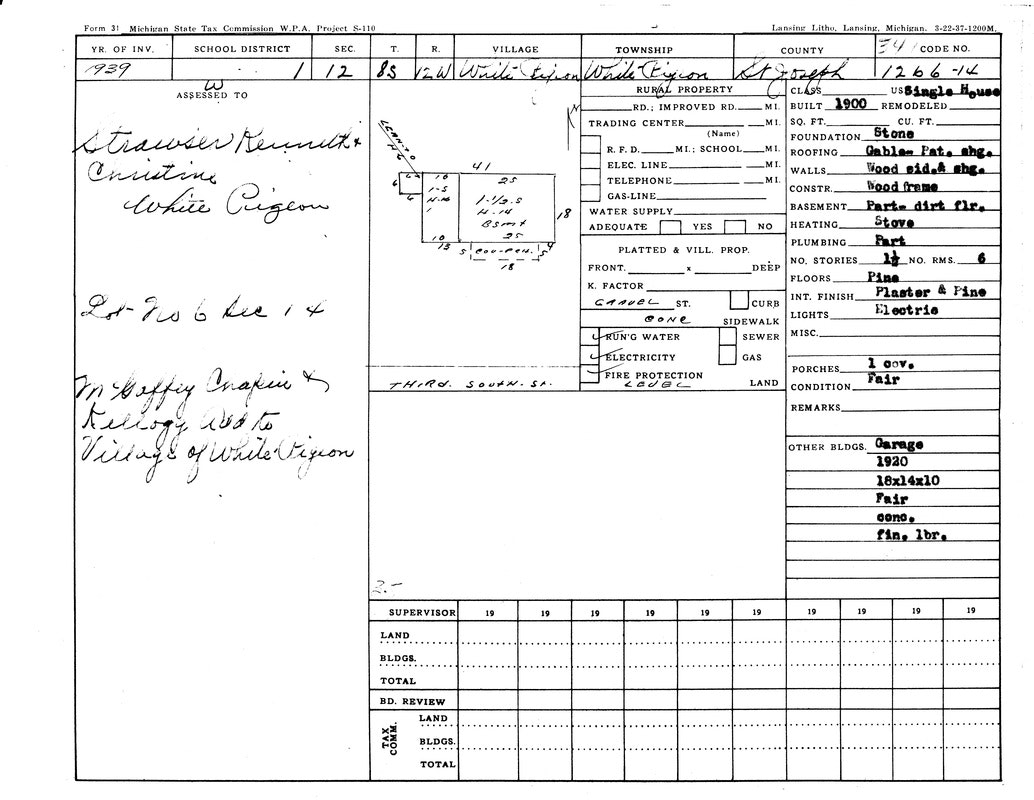 Form 31 Michigan State Tax Commission W.P.A. Project S-110
Lansing Litho. Lansing, Michigan. 3-22-37-1200M.
YR. OF INV. SCHOOL DISTRICT SEC. T. R. VILLAGE TOWNSHIP COUNTY CODE NO.
1939 1 12 8S 12W White Pigeon White Pigeon St Joseph 1266-14
W
ASSESSED TO
Strawser Kenneth &
Christine
White Pigeon
Lot No 6 Sec 14
McGaffey Chapin &
Kellogg Add to
Village of White Pigeon
LEAN-TO
41
6 10 25
6 1-S 1-1/2.S
H-14
Bsmt
18
10 25
13 5 COV-PCH. 5 4
18
RURAL PROPERTY
RD.; IMPROVED RD. MI.
TRADING CENTER MI.
(Name)
R. F. D. MI.; SCHOOL MI.
ELEC. LINE MI.
TELEPHONE MI.
GAS-LINE
WATER SUPPLY
ADEQUATE YES NO
PLATTED & VILL. PROP.
FRONT. x DEEP
K. FACTOR
GRAVEL ST. CURB
CONC SIDEWALK
RUN'G WATER SEWER
ELECTRICITY GAS
FIRE PROTECTION
THIRD. SOUTH. ST. LEVEL LAND
CLASS US Single House
BUILT 1900 REMODELED
SQ. FT. CU. FT.
FOUNDATION Stone
ROOFING Gable- Pat. shg.
WALLS Wood sid.& shg.
CONSTR. Wood frame
BASEMENT Part- dirt flr.
HEATING Stove
PLUMBING Part
NO. STORIES 1½ NO. RMS. 6
FLOORS Pine
INT. FINISH Plaster & Pine
LIGHTS Electric
MISC.
PORCHES 1 cov.
CONDITION Fair
REMARKS
OTHER BLDGS. Garage
1920
18x14x10
Fair
conc.
fin. lbr.
2.-
SUPERVISOR 19 19 19 19 19 19 19 19 19 19
LAND
BLDGS.
TOTAL
BD. REVIEW
TAX COMM.
LAND
BLDGS.
TOTAL